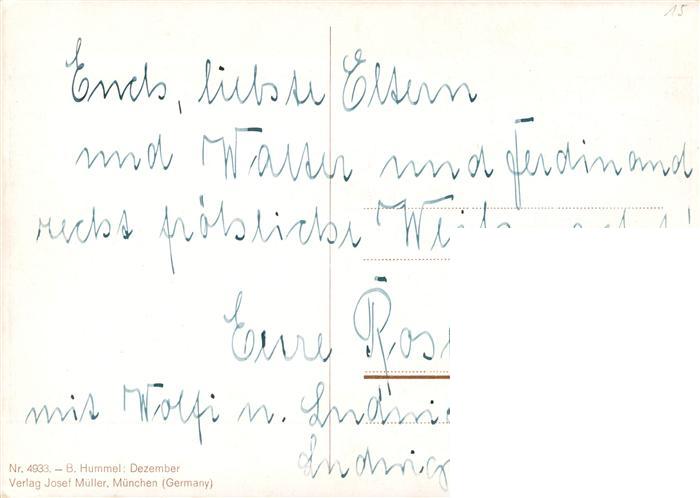 15
Euch, liebste Eltern
und Walter und Ferdinand
recht fröhliche
Eure
mit Wolfi u.
Nr. 4933. – B. Hummel: Dezember
Verlag Josef Müller, München (Germany)